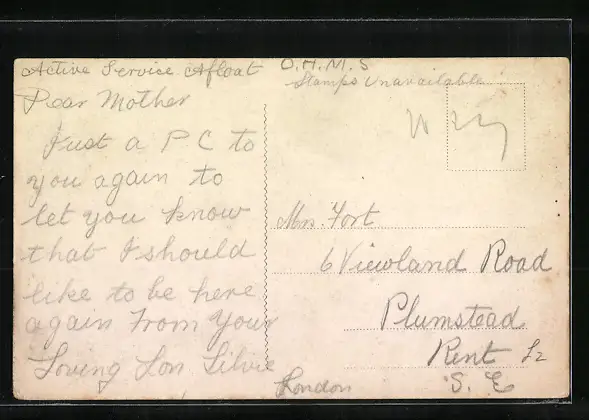 Active Service Afloat
O.H.M.S
Stamps Unavailable
Dear Mother
Just a PC to
you again to
let you know
that I should
like to be here
again From Your
Loving Son
Mrs. Fort
6 Viewland Road
Plumstead
Kent
London S. E